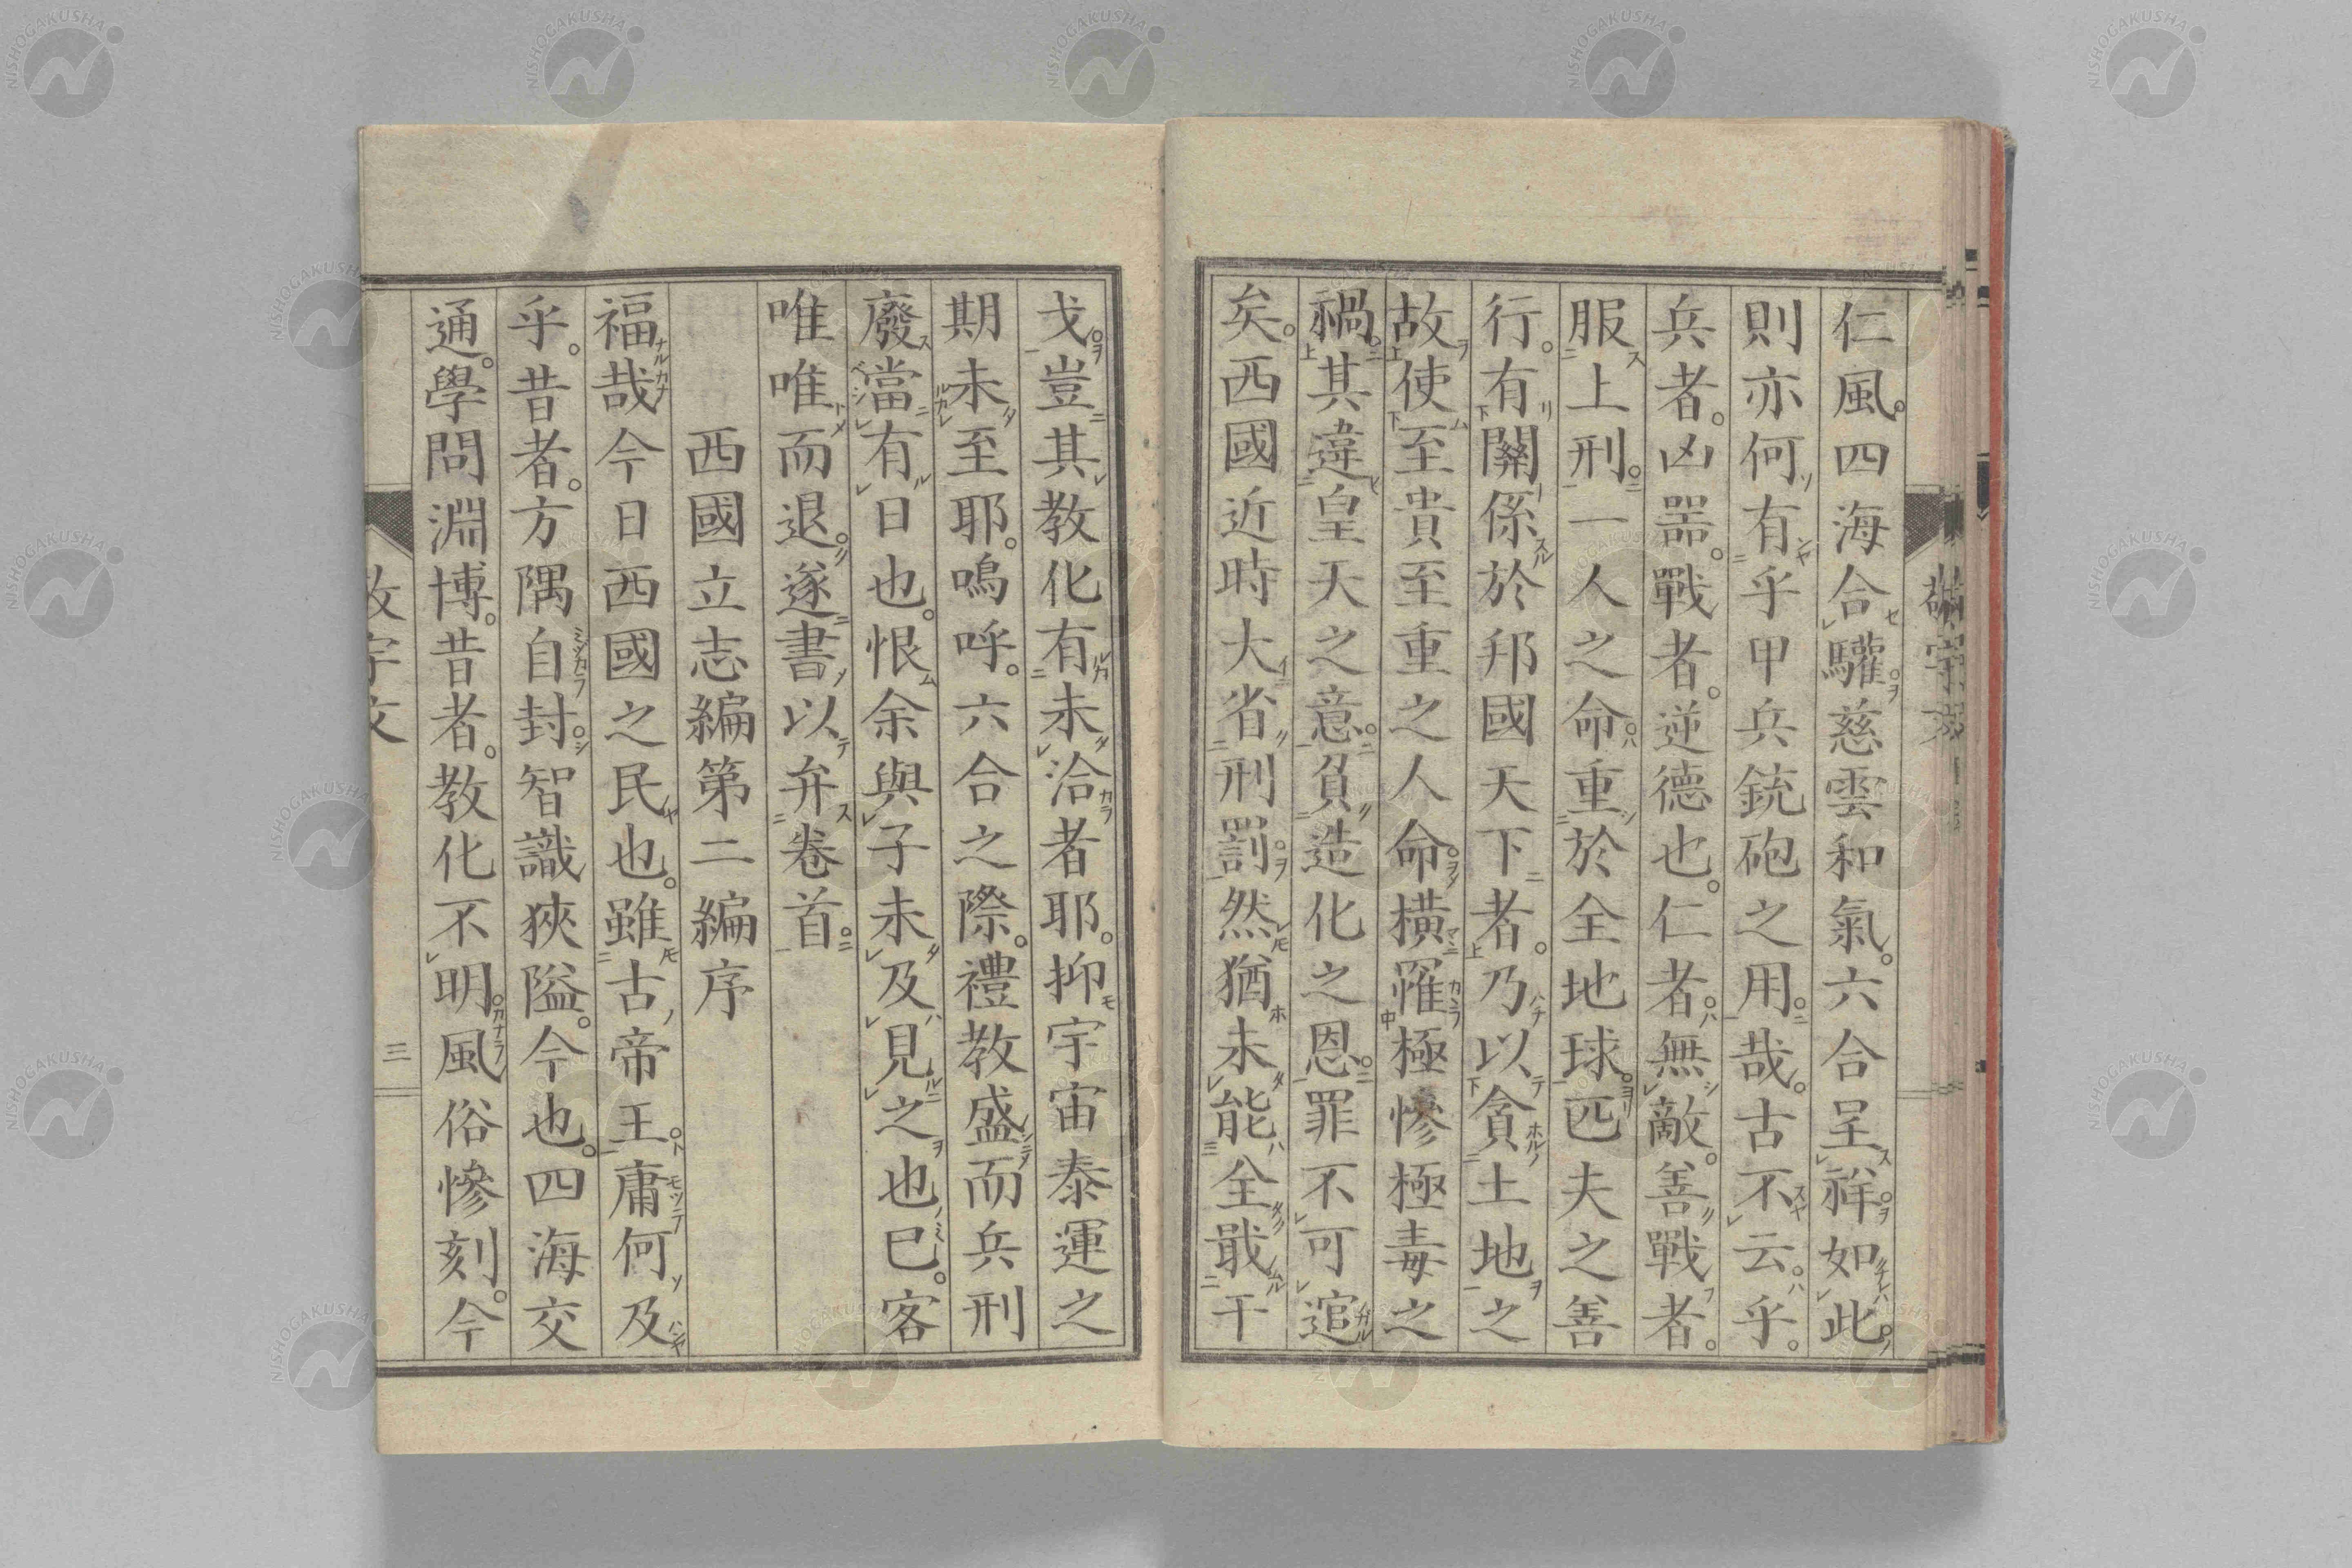 仁風。四海合驩。慈雲和氣。六合呈祥。如此。
則亦何有乎甲兵銃砲之用哉。古不云乎。
兵者。凶器。戰者。逆德也。仁者。無敵。善戰者。
服上刑。一人之命。重於全地球。匹夫之善
行。有關係於邦國天下者。乃以貪土地之
故。使至貴至重之人命。橫罹極慘極毒之
禍。其違皇天之意。負造化之恩。罪不可逭
矣。西國近時大省刑罰。然猶未能全戢干
戈。豈其教化有未洽者耶。抑宇宙泰運之
期未至耶。嗚呼。六合之際。禮教盛而兵刑
廢。當有日也。恨余與子未及見之也已。客
唯唯而退。遂書以弁卷首。
西國立志編第二編序
福哉今日西國之民也。雖古帝王。庸何及
乎。昔者。方隅自封。智識狹隘。今也。四海交
通。學問淵博。昔者。教化不明。風俗慘刻。今
敬宇文
三
NISHOGAKUSHA